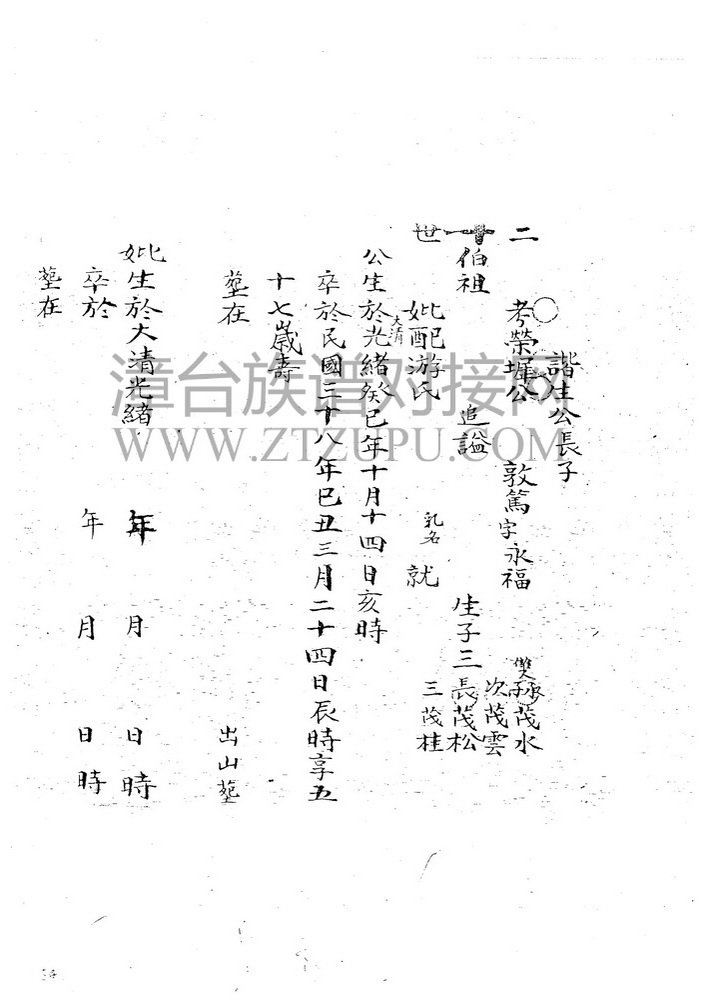 二十一世
諧生公長子
考榮堀公 敦篤字永福
伯祖 追謚 生子三
妣配游氏 乳名 就
雙承子茂水
次茂雲
長茂松
三茂桂
公生於大清光緒癸巳年十月十四日亥時
卒於民國三十八年已丑三月二十四日辰時享五
十七歲壽
塟在 出山塟
妣生於大清光緒 年 月 日時
卒於 年 月 日時
塟在
漳台族谱对接网
WWW.ZTZUPU.COM